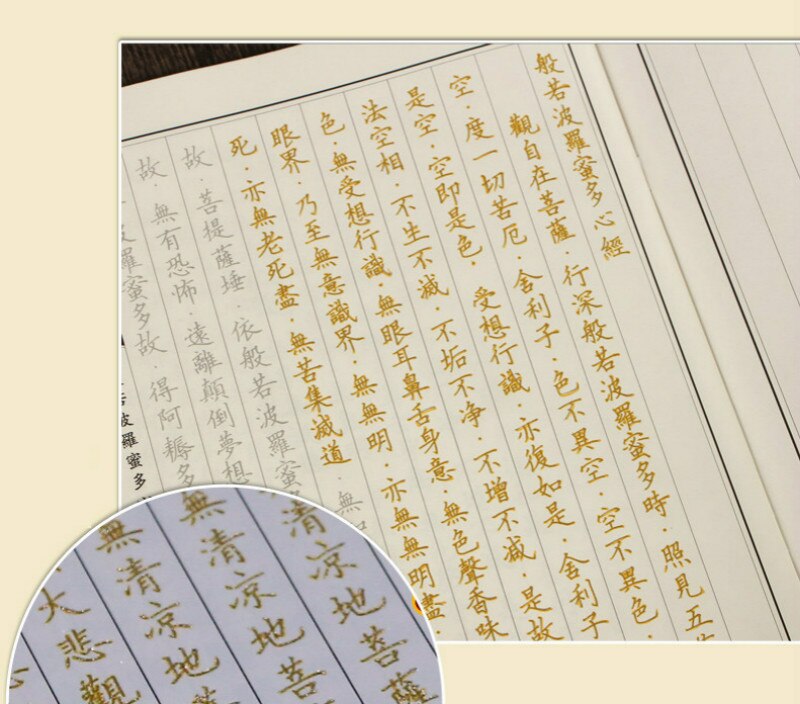 般若波羅蜜多心經
觀自在菩薩·行深般若波羅蜜多時·照見五
空·度一切苦厄·舍利子·色不異空·空不異色·
是空·空即是色·受想行識·亦復如是·舍利子
法空相·不生不滅·不垢不净·不增不减·是故
色·無受想行識·無眼耳鼻舌身意·無色聲香味
眼界·乃至無意識界·無無明·亦無無明盡·
死·亦無老死盡·無苦集滅道·無
故·菩提薩埵·依般若波羅蜜多
故·無有恐怖·遠離顛倒夢想
波羅蜜多故·得阿耨多
若波羅蜜多
清凉地菩薩
無清凉地菩
無清凉地
大悲觀